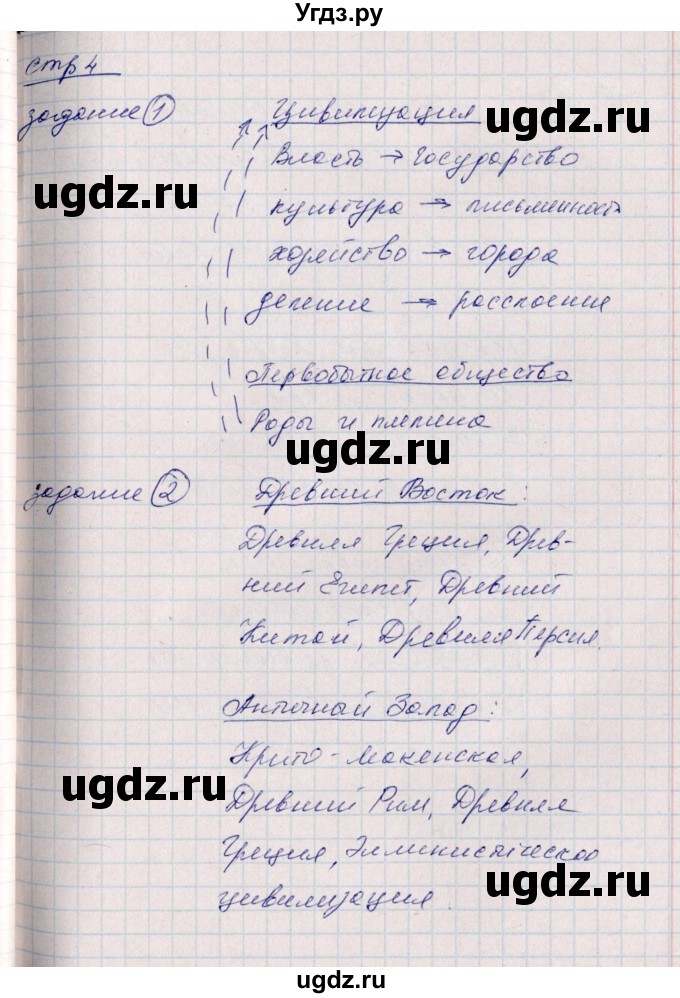 Угдз.ру
стр 4
задание 1
Цивилизация
ugdz.ru
Власть → Государство
ugdz.ru
культура → письменность
хозяйство → города
деление → расслоение
Первобытное общество
Роды и племена
ugdz.ru
задание 2
Древний Восток:
Древняя Греция, Древ-
ний Египет, Древний
ugdz.ru
Китай, Древняя Персия.
Античный Запад:
ugdz.ru
Крито-Макенская,
ugdz.ru
Древний Рим, Древняя
Греция, Эллинистическая
ugdz.ru
цивилизация.
ugdz.ru